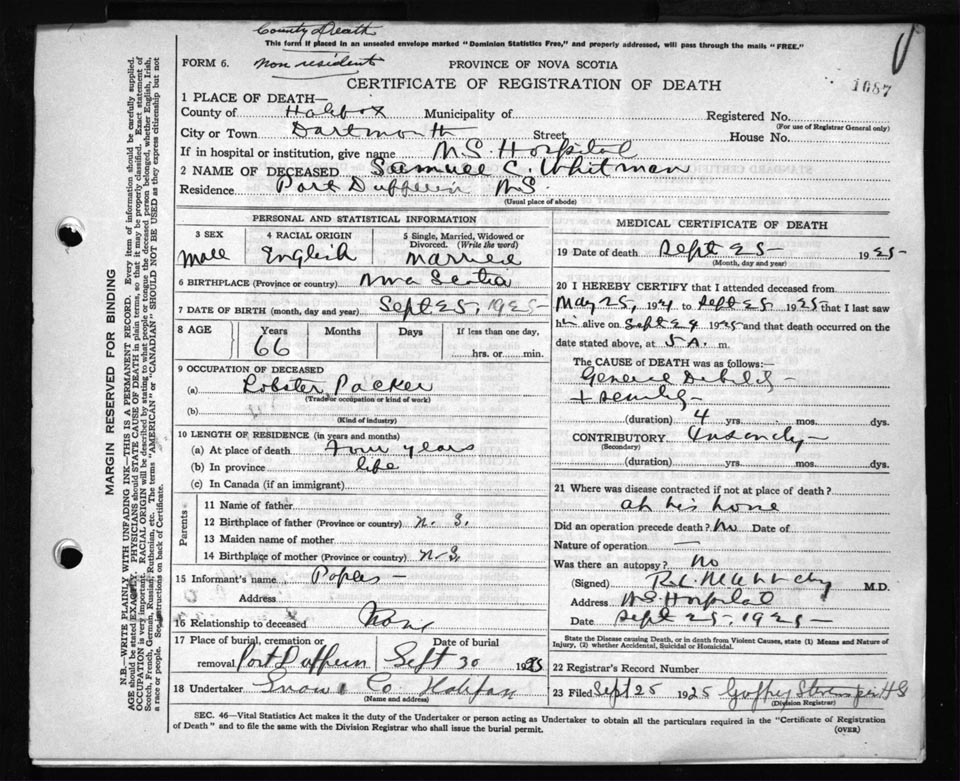 County Death
This form if placed in an unsealed envelope marked "Dominion Statistics Free," and properly addressed, will pass through the mails "FREE."
FORM 6. non residents PROVINCE OF NOVA SCOTIA
CERTIFICATE OF REGISTRATION OF DEATH
1087
1 PLACE OF DEATH—
County of Halifax Municipality of Registered No.
(For use of Registrar General only)
City or Town Dartmouth Street House No.
If in hospital or institution, give name N.S. Hospital
2 NAME OF DECEASED Samuel C. Whitman
Residence Port Dufferin N.S.
(Usual place of abode)
PERSONAL AND STATISTICAL INFORMATION
3 SEX 4 RACIAL ORIGIN 5 Single, Married, Widowed or Divorced. (Write the word)
Male English Married
6 BIRTHPLACE (Province or country) Nova Scotia
7 DATE OF BIRTH (month, day and year) Sept 25, 1925
8 AGE Years Months Days If less than one day,
66 hrs. or min.
9 OCCUPATION OF DECEASED
(a) Lobster Packer
(Trade or occupation or kind of work)
(b)
(Kind of industry)
10 LENGTH OF RESIDENCE (in years and months)
(a) At place of death Four years
(b) In province life
(c) In Canada (if an immigrant)
Parents
11 Name of father
12 Birthplace of father (Province or country) N. S.
13 Maiden name of mother
14 Birthplace of mother (Province or country) N. S.
15 Informant's name Papers —
Address
16 Relationship to deceased None
17 Place of burial, cremation or removal Port Dufferin Date of burial Sept 30 1925
18 Undertaker Snow & Co Halifax
(Name and address)
MEDICAL CERTIFICATE OF DEATH
19 Date of death Sept 25 1925
(Month, day and year)
20 I HEREBY CERTIFY that I attended deceased from
May 25, 1921 to Sept 25 1925 that I last saw
him alive on Sept 24 1925 and that death occurred on
date stated above, at 5 A. m.
The CAUSE of DEATH was as follows:
General Debility
+ Senility
(duration) 4 yrs. mos. dys.
CONTRIBUTORY Insanity
(Secondary)
(duration) yrs. mos. dys.
21 Where was disease contracted if not at place of death?
at his home
Did an operation precede death? No Date of
Nature of operation —
Was there an autopsy? No
(Signed) M.D.
Address N.S. Hospital
Date Sept 25, 1925
State the Disease causing Death, or in death from Violent Causes, state (1) Means and Nature of Injury, (2) whether Accidental, Suicidal or Homicidal.
22 Registrar's Record Number
23 Filed Sept 25 1925 per H S
(Division Registrar)
SEC. 46—Vital Statistics Act makes it the duty of the Undertaker or person acting as Undertaker to obtain all the particulars required in the "Certificate of Registration
of Death" and to file the same with the Division Registrar who shall issue the burial permit.
(OVER)
MARGIN RESERVED FOR BINDING
N.B.—WRITE PLAINLY WITH UNFADING INK—THIS IS A PERMANENT RECORD. Every item of information should be carefully supplied.
AGE should be stated EXACTLY. PHYSICIANS should STATE CAUSE OF DEATH in plain terms, so that it may be properly classified. Exact statement of
OCCUPATION is very important. RACIAL ORIGIN will be described by stating to what people or tongue the deceased person belonged, whether English, Irish,
Scotch, French, German, Russian, Ruthenian, etc. The terms "AMERICAN" or "CANADIAN" SHOULD NOT BE USED as they express citizenship but not
a race or people. See instructions on back of Certificate.